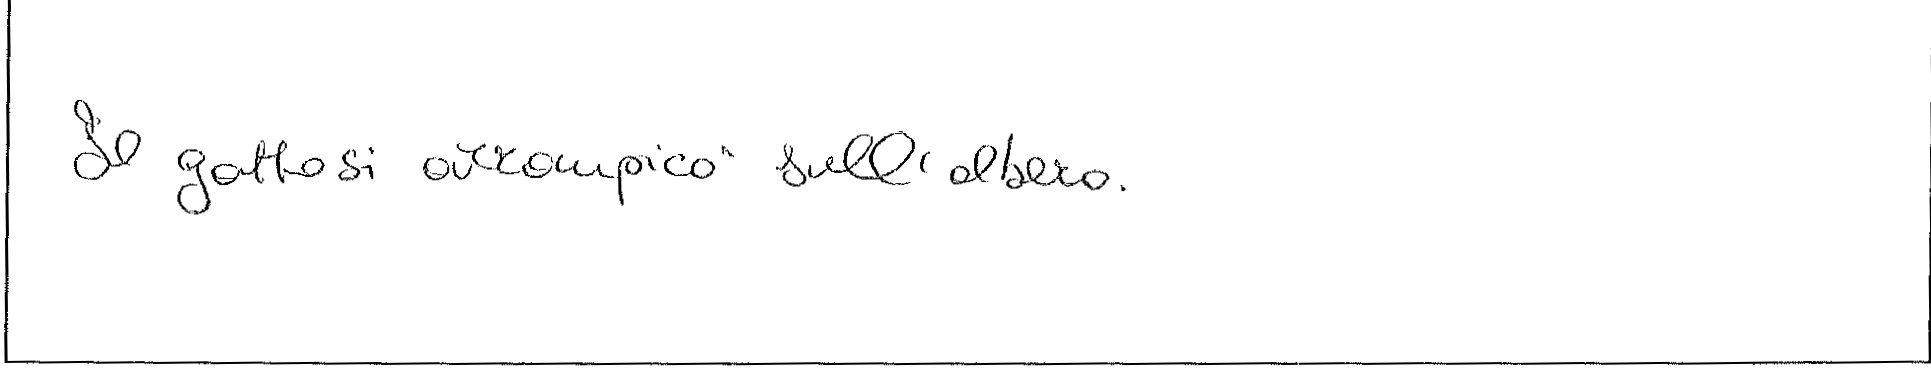 Il gatto si arrampicò sull'albero.